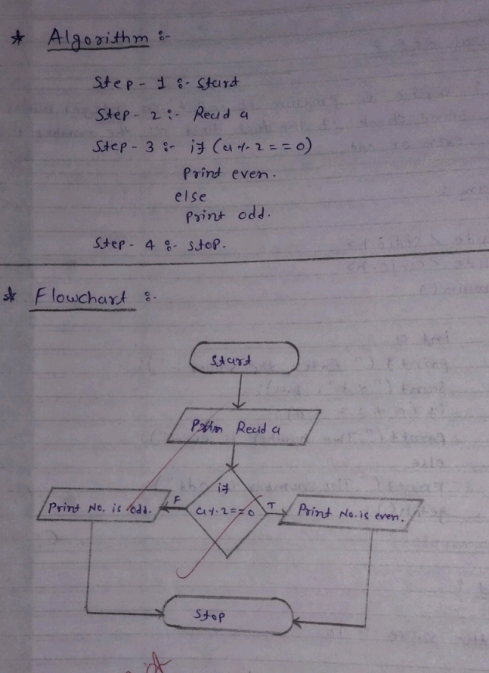 * Algorithm :-
Step - 1 :- Start
Step - 2 :- Read a
Step - 3 :- if (a % 2 == 0)
Print even.
else
Print odd.
Step - 4 :- Stop.
* Flowchart :-
Start
Read a
if
a % 2 == 0
F
T
Print No. is odd.
Print No. is even.
Stop